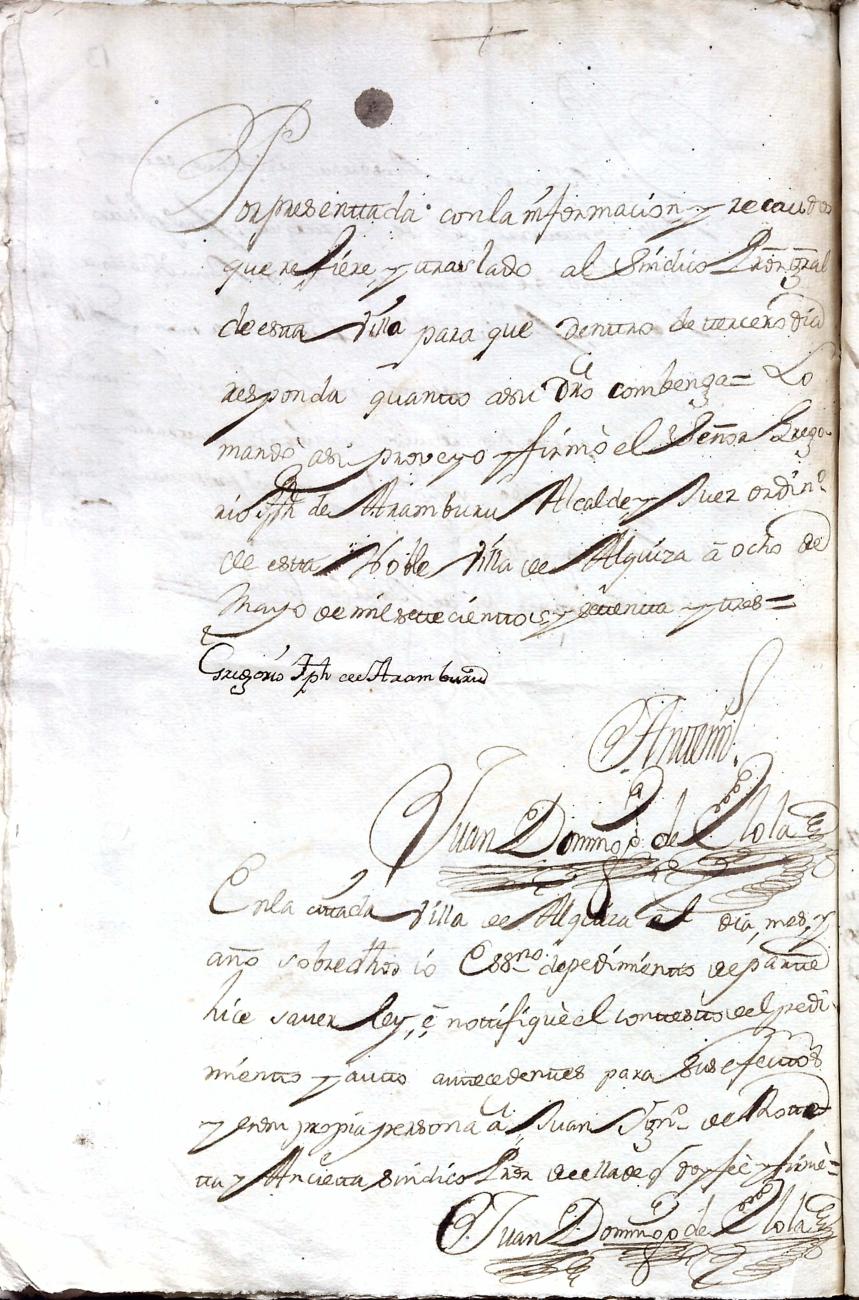 Por presenttada con la informacion y recaudos
que refiere, y traslado al Sindico Prōr Gral
de esta Villa para que denttro de tercero dia
responda quantto a su dro combenga= Lo
mandò asi proveyo y firmò el Señor Grego-
rio Jph de Aramburu Alcalde y Juez ordinº
de esta Noble Villa de Alquiza à ocho de
Mayo de mil settecienttos, y settentta y tres=
Gregorio Jph de Aramburu
Antemi
Juan Domingo de Olola
En la cittada Villa de Alquiza el dia, mes, y
año sobredhos io Essno. de pedimientto de partte
hice saver, ley, è nottifiquè el conttestto del pedi-
mientto y autto anttecedenttes para sus efecttos
y en su propia persona à Juan Ignº de
tta y Ancietta sindico Prōr de ella de q doy feè y firmè=
Juan Domingo de Olola